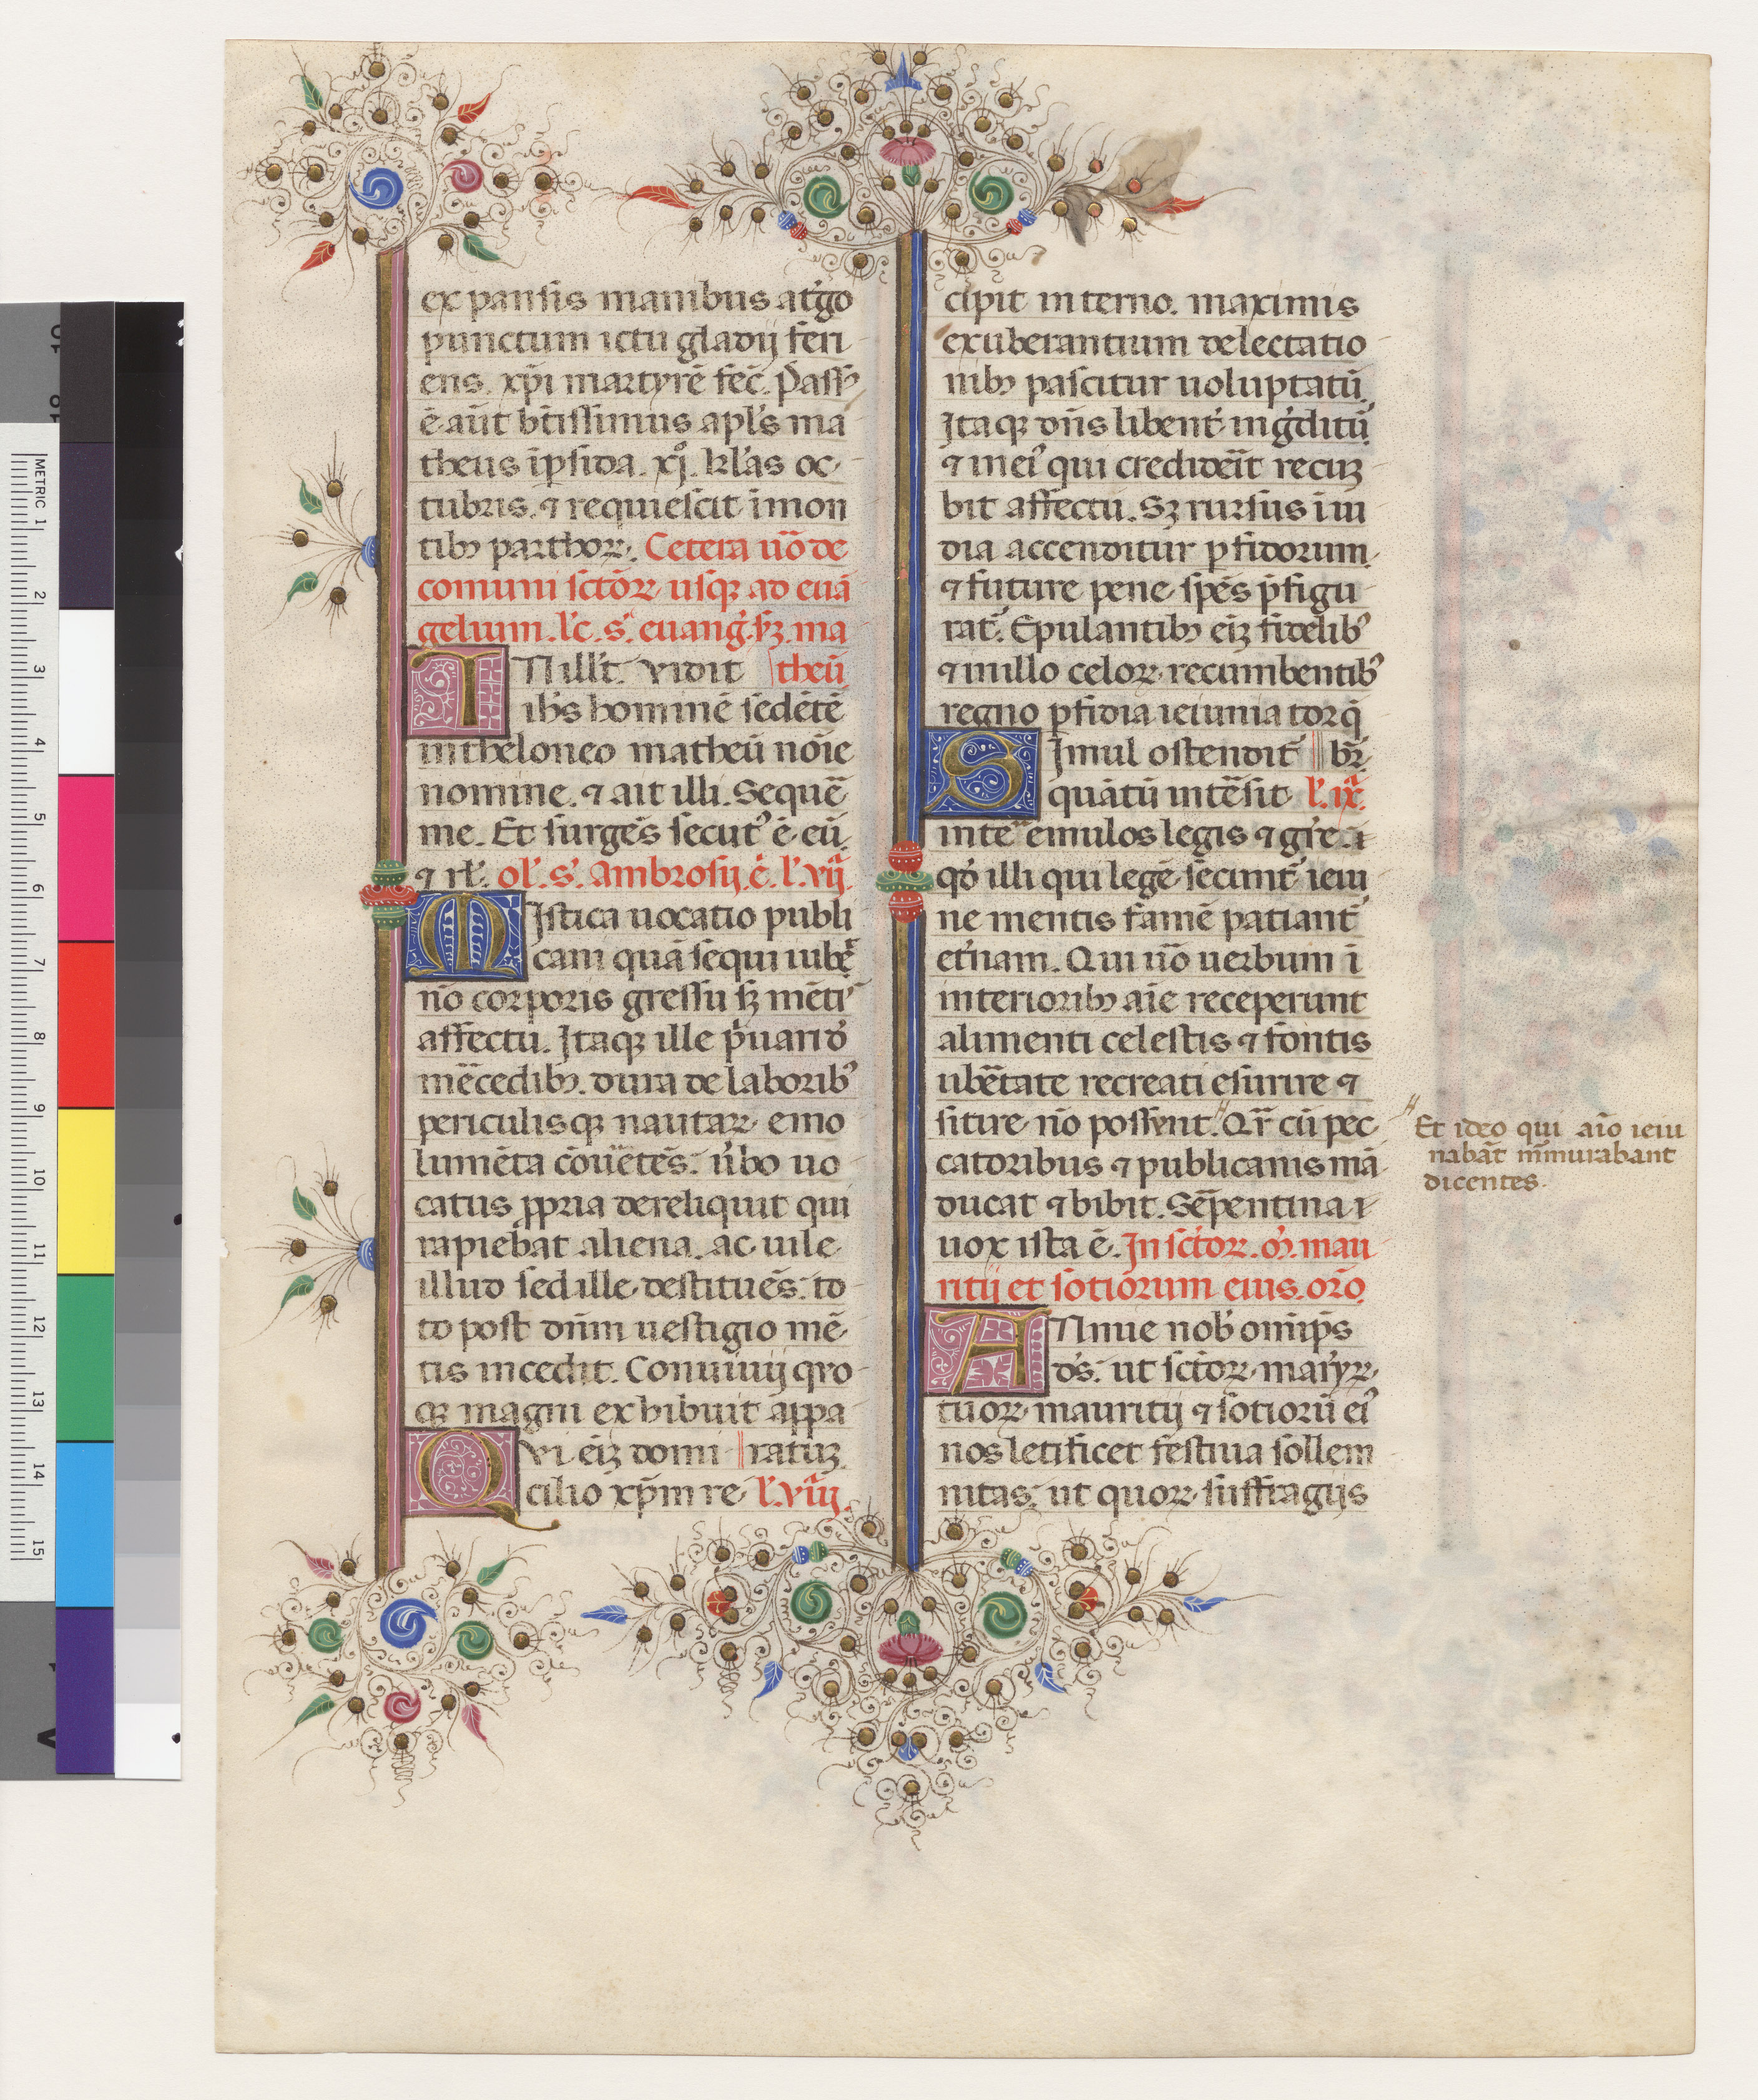 expansis manibus at᷑go
punctum ictu gladij feri
ens. xp̄i martyrē fec̄. Pass᷒
ē aūt bt̄issimus apl's ma
theus īpsida. xj. kl'as oc
tubris. ⁊ requiescit ī mon
tib᷒ parthoꝝ. Cetera ūo de
comuni sctōꝝ usqꝫ ad euā
gelium. l'c. s. euang. sꝫ. ma
theū
IN ill't. vidit
ih̄s hominē sedētē
in theloneo matheū nōie
nomine. ⁊ ait illi. Sequē
me. Et surgēs secut᷒ ē eū.
⁊ rl'. ol'. s. Ambrosij. ē. l'. vij.
MIstica uocatio publi
cani quā sequi iub̄e
nō corporis gressu sꝫ mēti᷒
affectu. Itaqꝫ ille p̄uarid᷒
mēcedib᷒. dura de laborib᷒
periculisqꝫ nautaꝝ emo
lumēta cōuētēs. ūbo uo
catus ꝓpria dereliquit qui
rapiebat aliena. ac uile
illud sedille destituēs. to
to post dn̄m uestigio mē
tis incedit. Conuiuij qro
qꝫ magni exhibuit appa
ratuꝫ.
QVi eiꝫ domi
cilio xp̄m re l'. viij.
cipit interno. maximis
exuberantium delectatio
nib᷒ pascitur uoluptatū.
Itaqꝫ dn̄s libent᷑ ing᷑ditu᷑
⁊ in ei᷒ qui credideīt recuꝫ
bit affectu. Sꝫ rursus īui
dia accenditur ꝑfidorum.
⁊ future pene spēs p̄figu
rat᷑. Epulantib᷒ eiꝫ fidelib᷒
⁊ in illo celoꝝ recumbentib᷒
regno ꝑfidia ieiunia torq̄
br᷑.
SImul ostendit᷑
quātū intēsit l'. ix.
inte᷑ emulos legis ⁊ gr̄e. ⁊
qd᷒ illi qui legē secūnt᷑ ieiu
ne mentis famē patiant᷑
et᷑nam. Qui ūo uerbum ī
interiorib᷒ aīe receperunt
alimenti celestis ⁊ fontis
ub̄etate recreati esurire ⁊
sitire nō possent. Qr̄ cū pec
catoribus ⁊ publicanis mā
ducat ⁊ bibit. Sēpentina ⁊
uox ista ē. In sctōꝝ. m̄. mau
ritij et sotiorum eius. oro.
ANnue nob᷒ omīps
ds. ut sctōꝝ mar᷑yꝝ
tuoꝝ mauritij ⁊ sotiorū ei᷒
nos letificet festiua sollem
nitas. ut quoꝝ suffragijs
Et ideo qui aīo ieiu
nabāt m̄murabant
dicentes.
METRIC 1 2 3 4 5 6 7 8 9 10 11 12 13 14 15